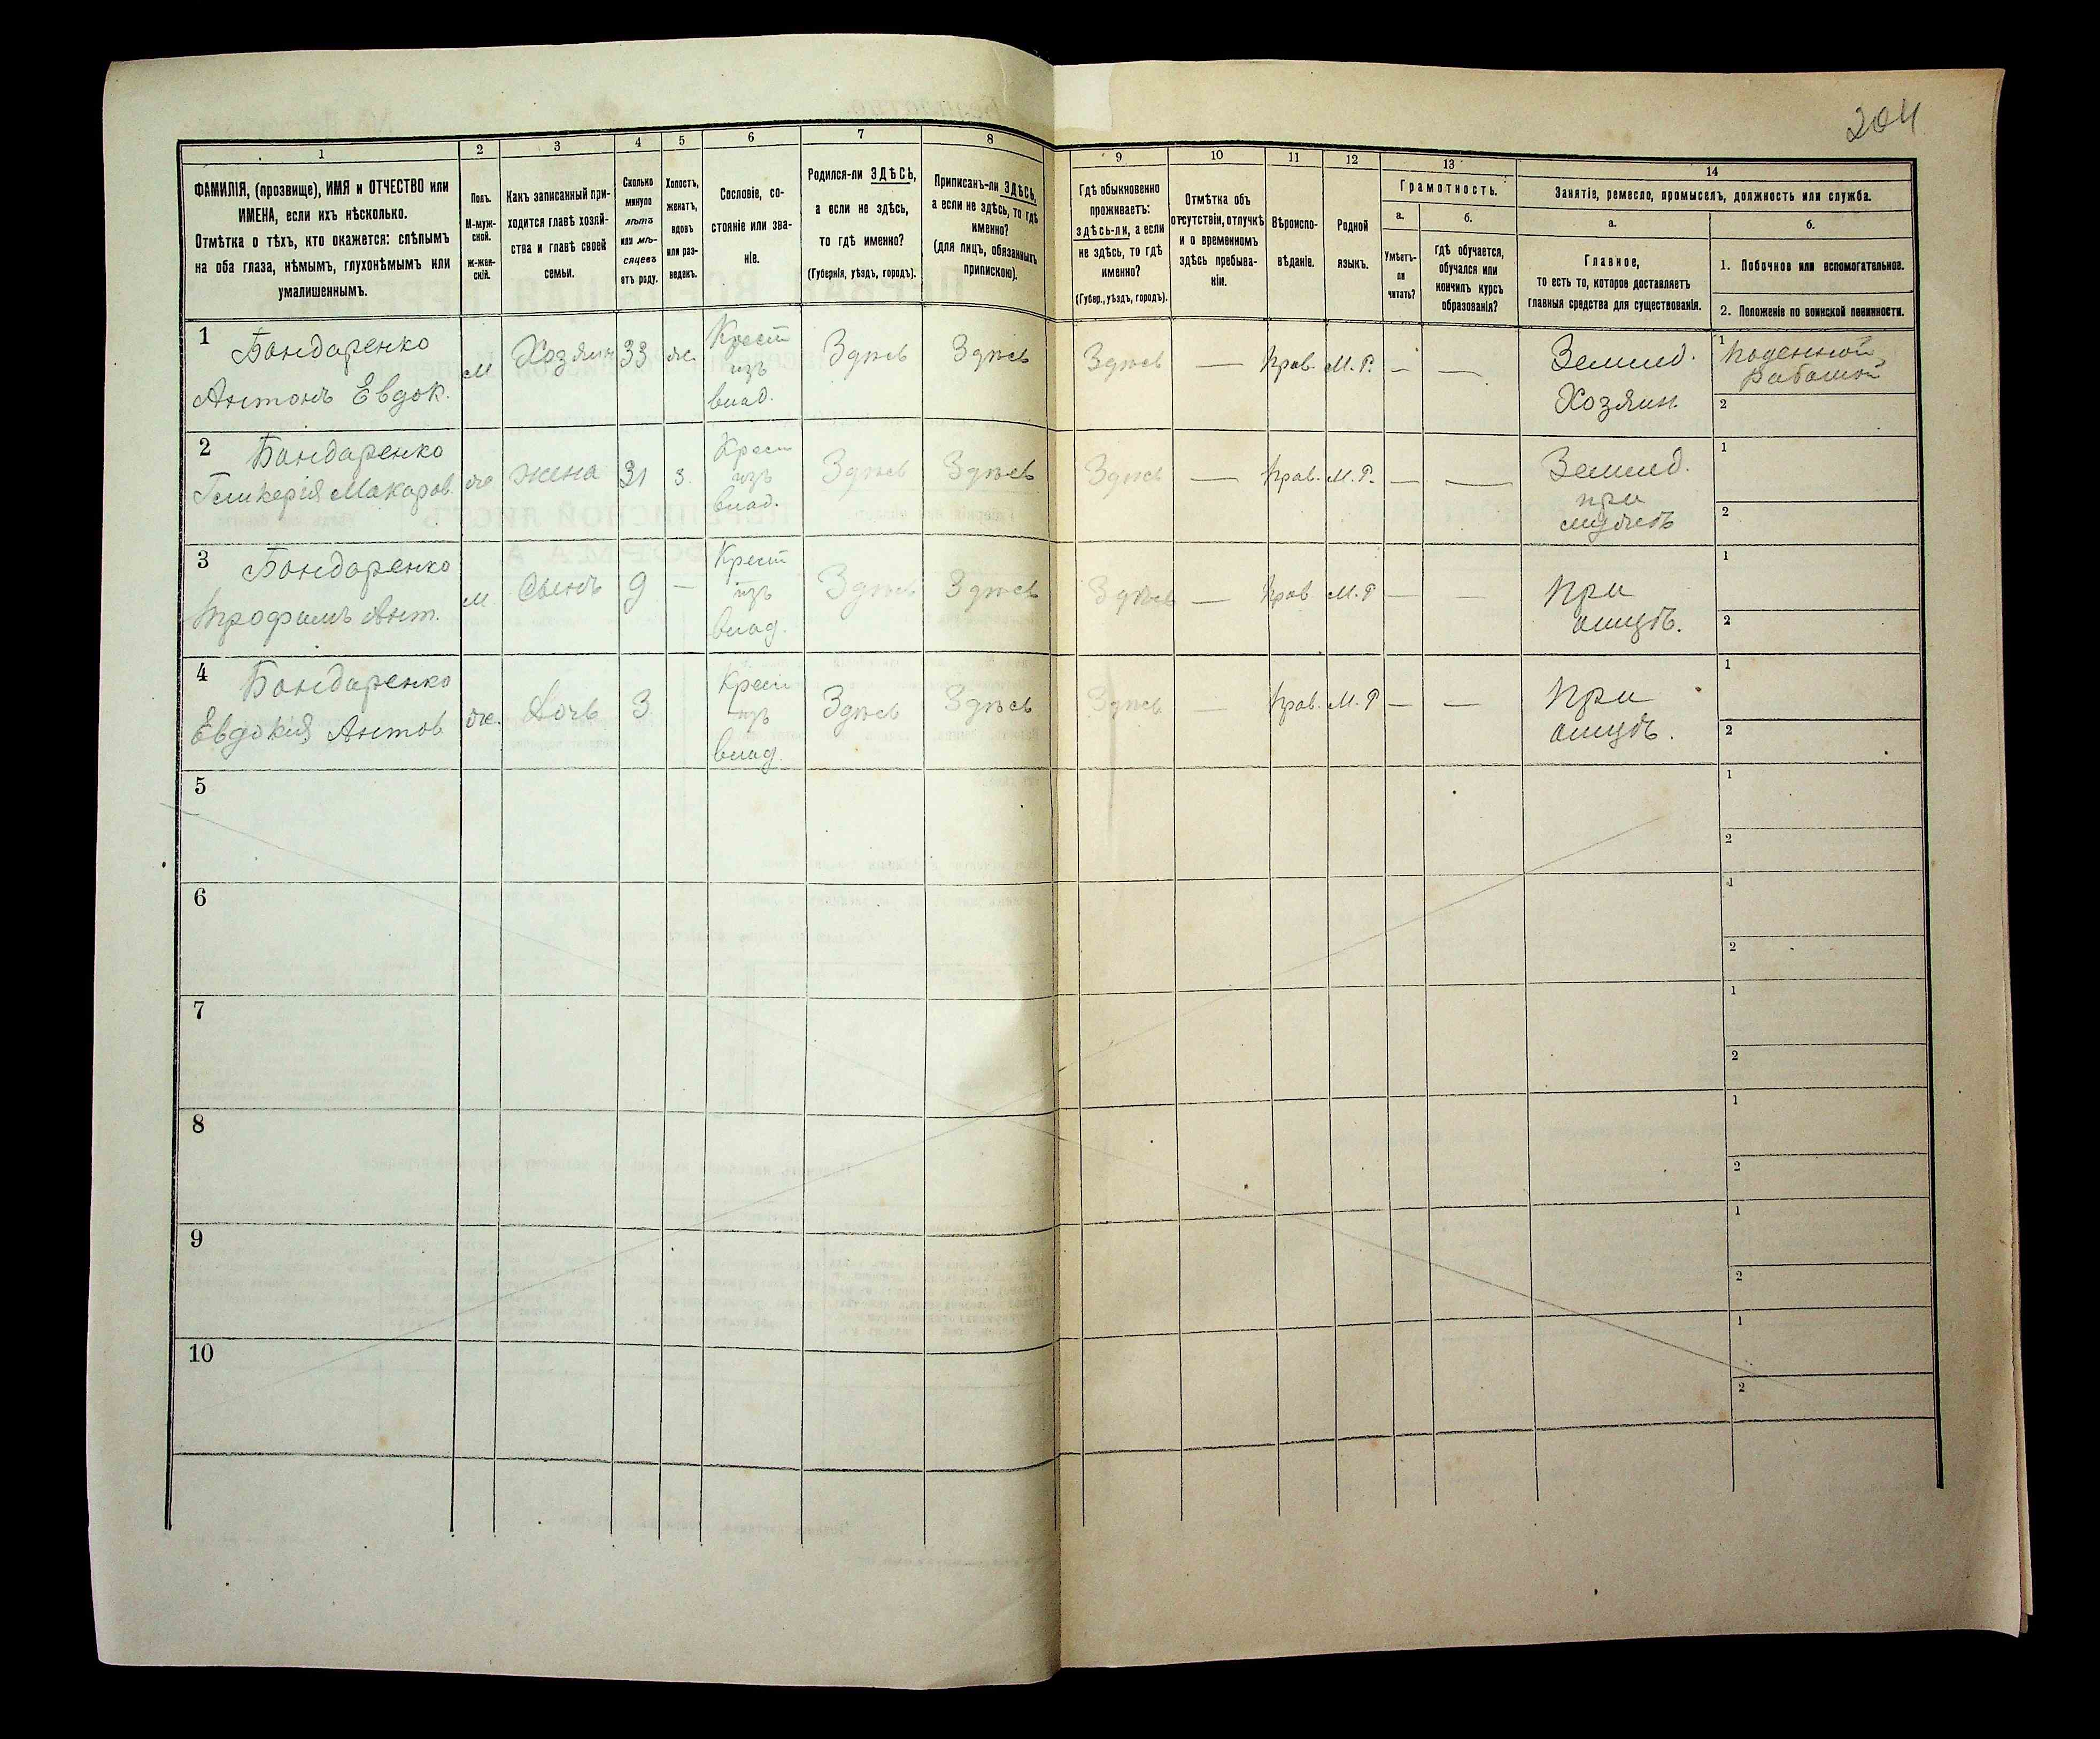 204
1 2 3 4 5 6 7 8 9 10 11 12 13 14
ФАМИЛІЯ, (прозвище), ИМЯ и ОТЧЕСТВО или
ИМЕНА, если ихъ нѣсколько.
Отмѣтка о тѣхъ, кто окажется: слѣпымъ
на оба глаза, нѣмымъ, глухонѣмымъ или
умалишеннымъ.
Полъ.
М-муж-
ской.
Ж-жен-
скій.
Какъ записанный при-
ходится главѣ хозяй-
ства и главѣ своей
семьи.
Сколько
минуло
лѣтъ
или мѣ-
сяцевъ
отъ роду.
Холостъ,
женатъ,
вдовъ
или раз-
веденъ.
Сословіе, со-
стояніе или зва-
ніе.
Родился-ли ЗДѢСЬ,
а если не здѣсь,
то гдѣ именно?
(Губернія, уѣздъ, городъ).
Приписанъ-ли ЗДѢСЬ,
а если не здѣсь, то гдѣ
именно?
(для лицъ, обязанныхъ
припискою).
Гдѣ обыкновенно
проживаетъ:
здѣсь-ли, а если
не здѣсь, то гдѣ
именно?
(Губер., уѣздъ, городъ).
Отмѣтка объ
отсутствіи, отлучкѣ
и о временномъ
здѣсь пребыва-
ніи.
Вѣроиспо-
вѣданіе.
Родной
языкъ.
Грамотность.
а.
Умѣетъ-
ли
читать?
б.
гдѣ обучается,
обучался или
кончилъ курсъ
образованія?
Занятіе, ремесло, промыселъ, должность или служба.
а.
Главное,
то есть то, которое доставляетъ
главныя средства для существованія.
б.
1. Побочное или вспомогательное.
2. Положеніе по воинской повинности.
1 Бондаренко
Антонъ Евдок.
м
Хозяин
33
же.
Крест
изъ
влад.
Здѣсь
Здѣсь
Здѣсь
—
Прав.
М.Р.
—
—
Землед.
Хозяин.
1 Поденной
работой
2
2 Бондаренко
Гликерія Макаров.
же
жена
31
з.
Крест
изъ
влад.
Здѣсь
Здѣсь
Здѣсь
—
Прав.
М.Р.
—
—
Землед.
при
мужѣ
1
2
3 Бондаренко
Трофимъ Ант.
м
Сынъ
9
—
Крест
изъ
влад.
Здѣсь
Здѣсь
Здѣсь
—
Прав
М.Р
—
—
при
отцѣ.
1
2
4 Бондаренко
Евдокія Антов
же.
Дочь
3
Крест
изъ
влад.
Здѣсь
Здѣсь
Здѣсь
—
Прав.
М.Р
—
—
при
отцѣ.
1
2
5
1
2
6
1
2
7
1
2
8
1
2
9
1
2
10
1
2